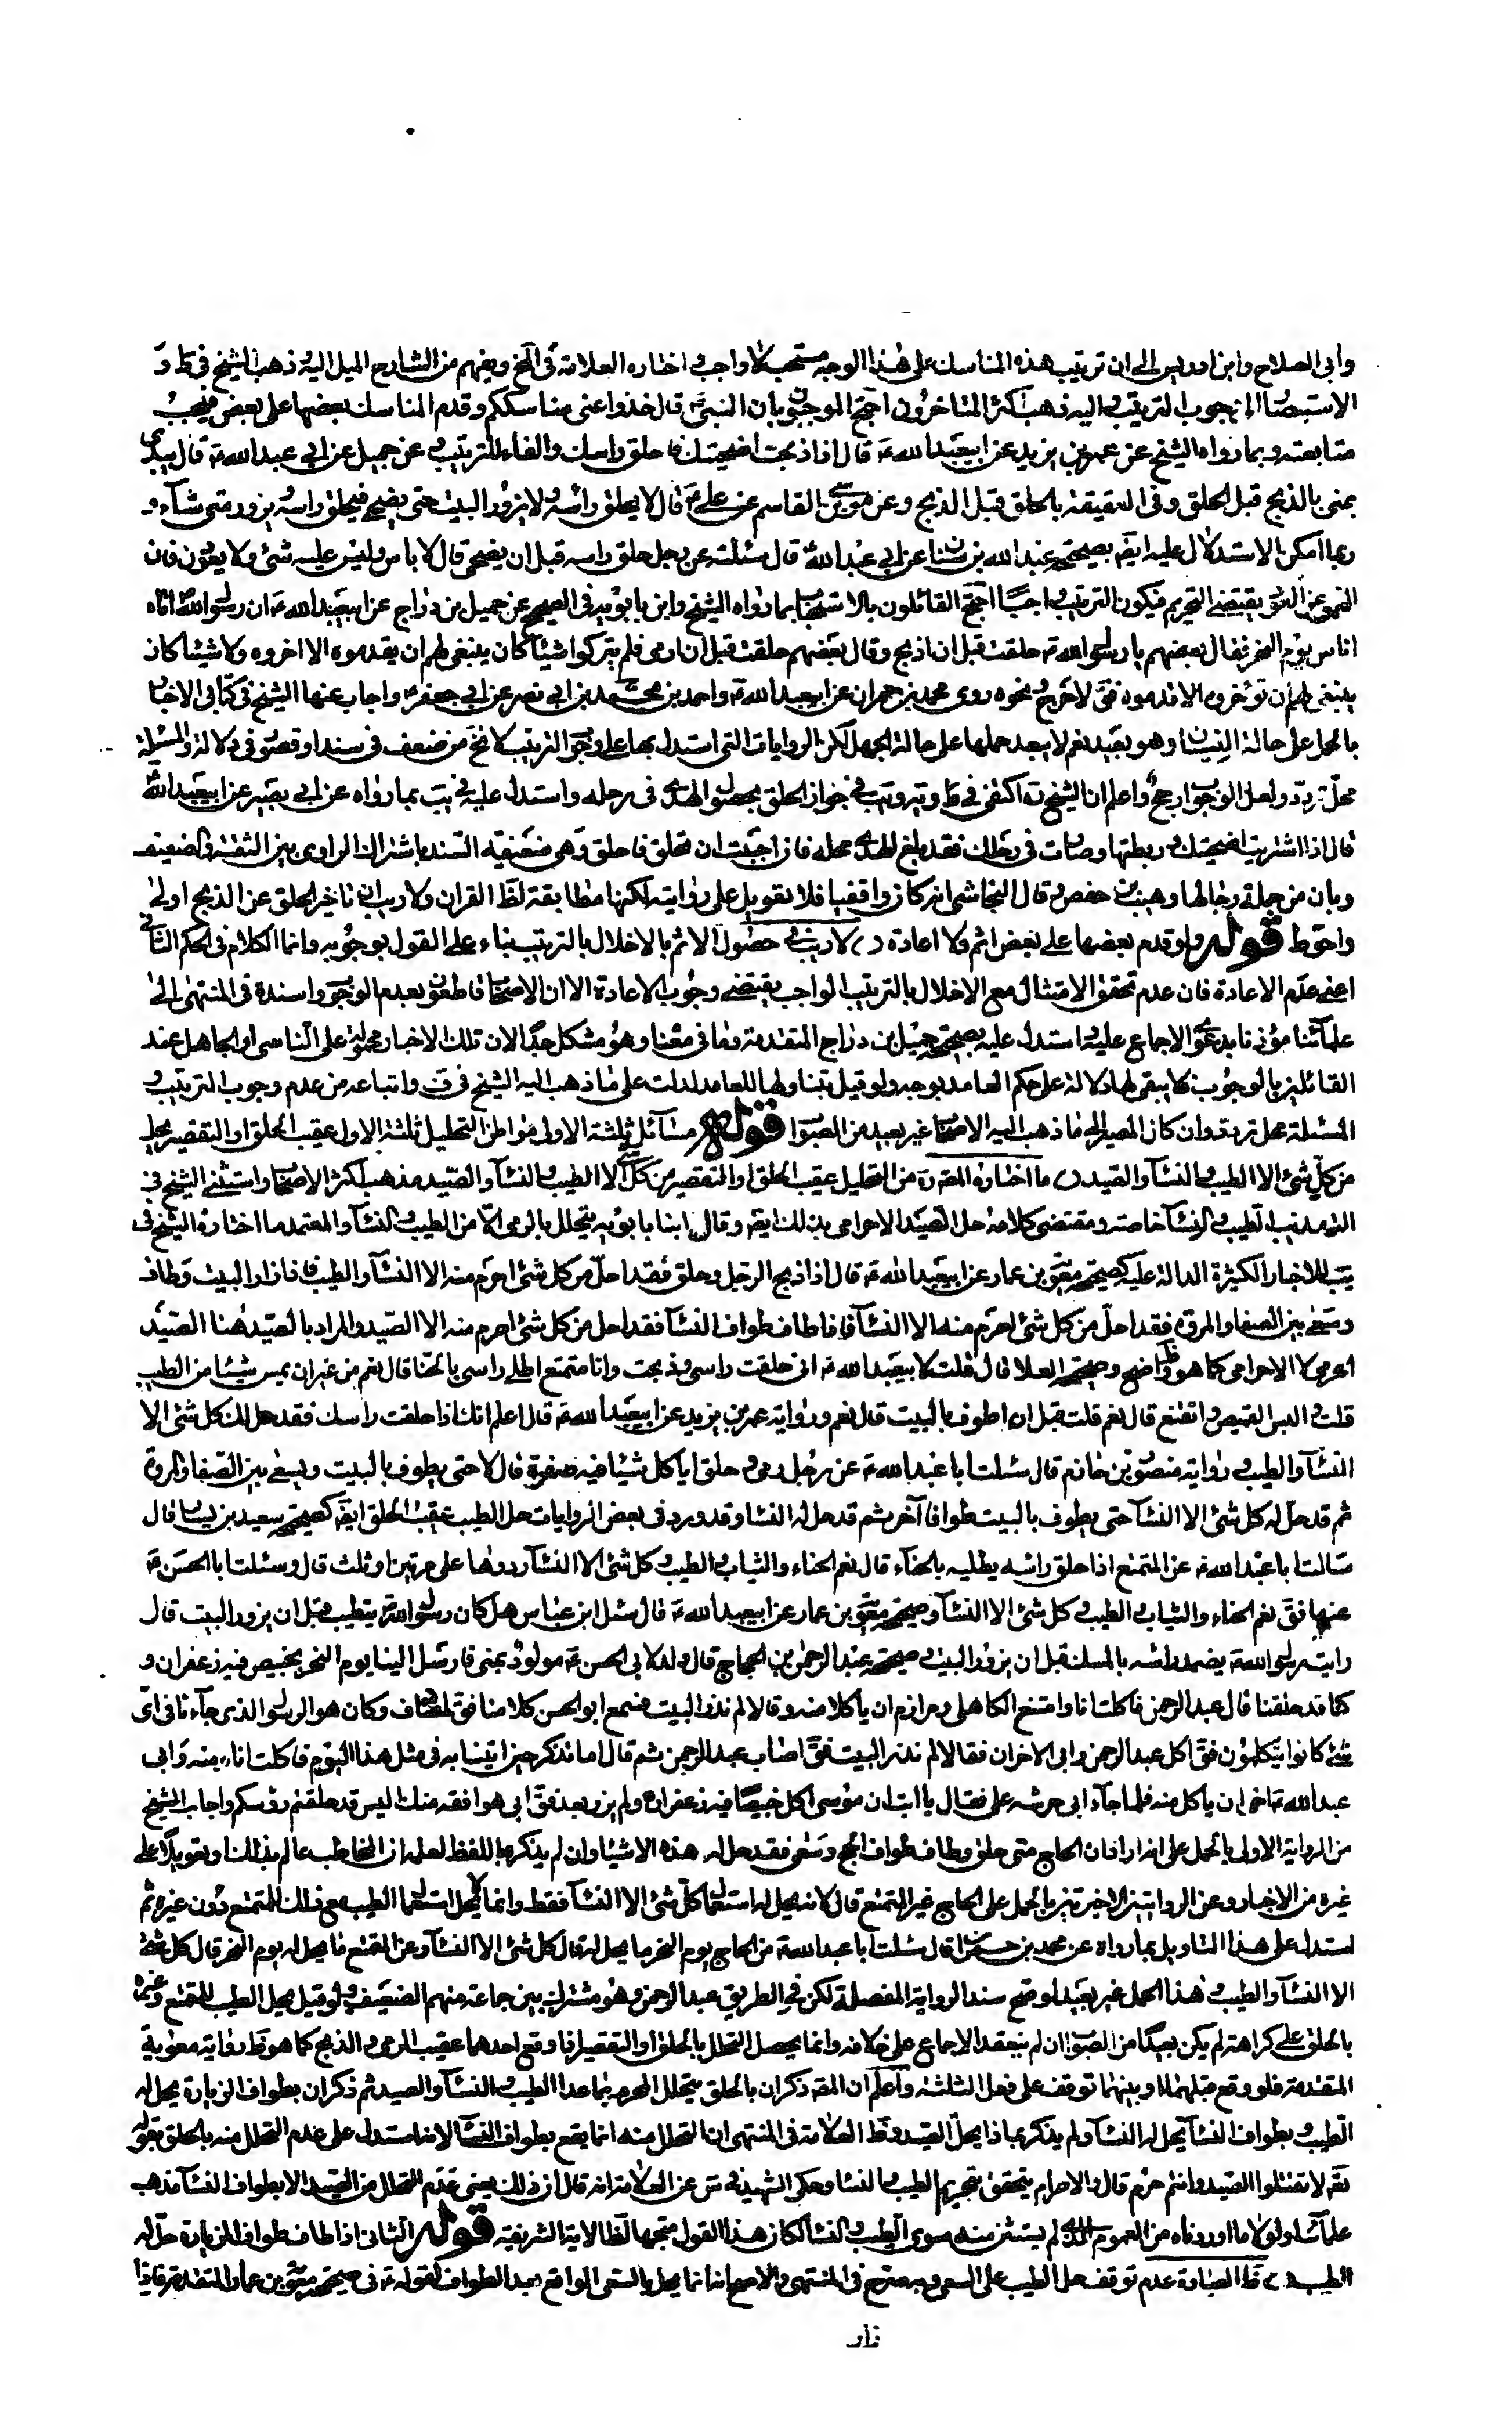 وأبي الصلاح وابن ادريس الى ان ترتيب هذه المناسك على هذا الوجه مستحب لا واجب و اختاره العلامة في لخ ويفهم من الشارح الميل اليه ذهب الشيخ في ط و
الاستبصار الى وجوب الترتيب واليه ذهب اكثر المتاخرون احتج الموجبون بان النبي ص قال خذوا عني مناسككم وقدم المناسك بعضها على بعض فيجب
متابعته وبما رواه الشيخ عن عمر بن يزيد عن ابيعبد الله ع قال اذا ذبحت اضحيتك فاحلق راسك والفاء للترتيب و عن جميل عن ابي عبد الله ع قال يبدى
بمنى بالذبح قبل الحلق وفي العقيقة بالحلق قبل الذبح وعن موسى بن القاسم عن علي ع قال لا يحلق رأسه ولا يزور البيت حتى يضحي فيحلق راسه ويزور متى شآء و
ربما امكن الاستدلال عليه ايض بصحيحة عبد الله بن سنان عن ابي عبد الله قال سئلته عن رجل حلق راسه قبل ان يضحى قال لا باس وليس عليه شئ ولا يعودن فان
النهى عن العود يقتضي التحريم فيكون الترتيب واجبا احتج القائلون بالاستحباب بما رواه الشيخ وابن بابويه في الصحيح عن جميل بن دراج عن ابيعبد الله ع ان رسول الله اتاه
اناس يوم النحر فقال بعضهم يا رسول الله حلقت قبل ان اذبح وقال بعضهم حلقت قبل ان ارمى فلم يتركوا شيئا كان ينبغى لهم ان يقدموه الا اخروه ولا شيئا كان
ينبغى لهم ان تؤخروه الا قدموه فق لا حرج و نحوه روى محمد بن حمران عن ابيعبد الله ع واحمد بن محمد بن ابي نصر عن ابي جعفر ع واجاب عنها الشيخ في كتابي الاخبار
بالحمل على حالة النسيان وهو بعيد نعم لا يبعد حملها على حالة الجهل لكن الروايات التي استدل بها على وجوب الترتيب لا تخ من ضعف في سند او قصور في دلالة والمسئلة
محل تردد ولعل الوجوب ارجح واعلم ان الشيخ ره اكتفى في ط و ية و يب في جواز الحلق بحصول الهدى في رحله واستدل عليه في يب بما رواه عن ابي بصير عن ابيعبد الله
قال اذا اشتريت اضحيتك و ربطتها وصارت في رحلك فقد بلغ الهدى محله فان احببت ان تحلق فاحلق وهى ضعيفة السند باشتراك الراوى بين الثقة والضعيف
وبان من جملة رجالها وهيب بن حفص و قال النجاشى انه كان واقفيا فلا تعويل على روايته لكنها مطابقة لظ القران ولا ريب ان تاخير الحلق عن الذبح اولى
واحوط قوله ولو قدم بعضها على بعض اثم ولا اعادة لا ريب في حصول الاثم بالاخلال بالترتيب بناء على القول بوجوبه وانما الكلام في الحكم الثاني
اعني عدم الاعادة فان عدم تحقق الامتثال مع الاخلال بالترتيب الواجب يقتضى وجوب الاعادة الا ان الاصحاب قاطعون بعدم الوجوب واسنده في المنتهى الى
علمآئنا مؤذنا بدعوى الاجماع عليه واستدل عليه بصحيحة جميل بن دراج المتقدمة وما في معناها وهو مشكل جدا لان تلك الاخبار محمولة على الناسى او الجاهل عند
القائلين بالوجوب فلا يبقى لها دلالة على حكم العامد بوجه ولو قيل بتناولها للعامد لدلت على ما ذهب اليه الشيخ في ف واتباعه من عدم وجوب الترتيب و
المسئلة محل تردد وان كان المصير الى ما ذهب اليه الاصحاب غير بعيد من الصواب قوله مسآئل ثلثة الاولى مواطن التحليل ثلثة الاول عقيب الحلق او التقصير يحل
من كل شئ الا الطيب و النسآء والصيد ما اختاره المصره من التحليل عقيب الحلق او التقصير من كل شئ الا الطيب و النسآء والصيد مذهب اكثر الاصحاب واستثنى الشيخ في
التهذيب الطيب و النسآء خاصة ومقتضى كلامه حل الصيد الاحرامى بذلك ايض وقال ابنا بابويه يتحلل بالرمى الا من الطيب و النسآء والمعتمد ما اختاره الشيخ في
يب للاخبار الكثيرة الدالة عليه كصحيحة معوية بن عمار عن ابيعبد الله ع قال اذا ذبح الرجل وحلق فقد احل من كل شئ احرم منه الا النسآء والطيب فاذا زار البيت وطاف
وسعى بين الصفا والمروة فقد احل من كل شئ احرم منه الا النسآء فاذا طاف طواف النسآء فقد احل من كل شئ احرم منه الا الصيد والمراد بالصيد هنا الصيد
الحرمى لا الاحرامى كما هو واضح وصحيحة العلا قال قلت لابيعبد الله ع اني حلقت راسى وذبحت وانا متمتع اطلى راسى بالحنا قال نعم من غير ان يمس شيئا من الطيب
قلت و البس القميص واتقنع قال نعم قلت قبل ان اطوف بالبيت قال نعم ورواية عمر بن يزيد عن ابيعبد الله ع قال اعلم انك اذا حلقت راسك فقد حل لك كل شئ الا
النسآء والطيب و رواية منصور بن حازم قال سئلت ابا عبد الله ع عن رجل رمى و حلق اياكل شيئا فيه صفرة قال لا حتى يطوف بالبيت ويسعى بين الصفا والمروة
ثم قد حل له كل شئ الا النسآء حتى يطوف بالبيت طوافا آخر ثم قد حل له النسا وقد ورد في بعض الروايات حل الطيب عقيب الحلق ايض كصحيحة سعيد بن يسار قال
سالت ابا عبد الله ع عن المتمتع اذا حلق رأسه يطليه بالحنآء قال نعم الحناء والثياب و الطيب و كل شئ الا النسآء رددها على مرتين او ثلث قال وسئلت ابا الحسن ع
عنها فق نعم الحناء والثياب و الطيب و كل شئ الا النسآء وصحيحة معوية بن عمار عن ابيعبد الله ع قال سئل ابن عباس هل كان رسول الله ص يتطيب قبل ان يزور البيت قال
رايت رسول الله ص يضمد رأسه بالمسك قبل ان يزور البيت و صحيحة عبد الرحمن بن الحجاج قال ولد لابي الحسن ع مولود بمنى فارسل الينا يوم النحر بخبيص فيه زعفران و
كنا قد حلقنا قال عبد الرحمن فاكلت انا وامتنع الكاهلى و مرازم ان ياكلا منه وقالا لم نزر البيت فسمع ابو الحسن كلامنا فق لمصادف وكان هو الرسول الذى جآء نا في اى
شئ كانوا يتكلمون فق اكل عبد الرحمن وابي الاخران فقالا لم نزر البيت فق اصاب عبد الرحمن ثم قال اما تذكر حين اتينا به في مثل هذا اليوم فاكلت انا منه وابي
عبد الله ع اخى ان ياكل منه فلما جآء ابي حرشه على فقال يا ابت ان موسى اكل خبيصا فيه زعفران ولم يزر بعد فق ابي هو افقه منك اليس قد حلقتم رؤسكم واجاب الشيخ
من الرواية الاولى بالحمل على انه اراد ان الحاج متى حلق وطاف طواف الحج وسعى فقد حل له هذه الاشياء وان لم يذكرها باللفظ لعلمه ان المخاطب عالم بذلك او تعويلا على
غيره من الاخبار وعن الروايتين الاخيرتين بالحمل على الحاج غير المتمتع قال لانه يحل له استعمال كل شئ الا النسآء فقط وانما لا يحل استعمال الطيب مع ذلك للمتمتع دون غيره ثم
استدل على هذا التاويل بما رواه عن محمد بن حمران قال سئلت ابا عبد الله ع من الحاج يوم النحر ما يحل له قال كل شئ الا النسآء وعن المتمتع ما يحل له يوم النحر قال كل شئ
الا النسآء والطيب و هذا الحمل غير بعيد لو صح سند الرواية المفصلة لكن في الطريق عبد الرحمن وهو مشترك بين جماعة منهم الضعيف ولو قيل بحل الطيب للمتمتع وغيره
بالحلق على كراهة لم يكن بعيدا من الصواب ان لم ينعقد الاجماع على خلافه وانما يحصل التحلل بالحلق او التقصير اذا وقع احدهما عقيب الرمى و الذبح كما هو ظ رواية معوية
المتقدمة فلو وقع قبلهما او بينهما توقف على فعل الثلثة واعلم ان المصه ذكر ان بالحلق يتحلل المحرم بما عدا الطيب و النسآء والصيد ثم ذكر ان بطواف الزيارة يحل له
الطيب و بطواف النسآء يحل له النسآء ولم يذكر بماذا يحل الصيد وظ العلامة في المنتهى ان التحلل منه انما يقع بطواف النسآء لانه استدل على عدم التحلل منه بالحلق بقوله
تع لا تقتلوا الصيد وانتم حرم قال والاحرام يتحقق بتحريم الطيب والنسا وحكى الشهيد في س عن العلامة انه قال ان ذلك يعني عدم التحلل من الصيد الا بطواف النسآء مذهب
علمآئنا ولولا ما اوردناه من العموم الذي لم يستثن منه سوى الطيب و النسآء لكان هذا القول متجها لظ الاية الشريفة قوله الثانى اذا طاف طواف الزيارة حل له
الطيب ظ العبارة عدم توقف حل الطيب على السعى و به صرح في المنتهى والاصح انه انما يحل بالسعى الواقع بعد الطواف لقوله ع في صحيحة معوية بن عمار المتقدمة فاذا
زار